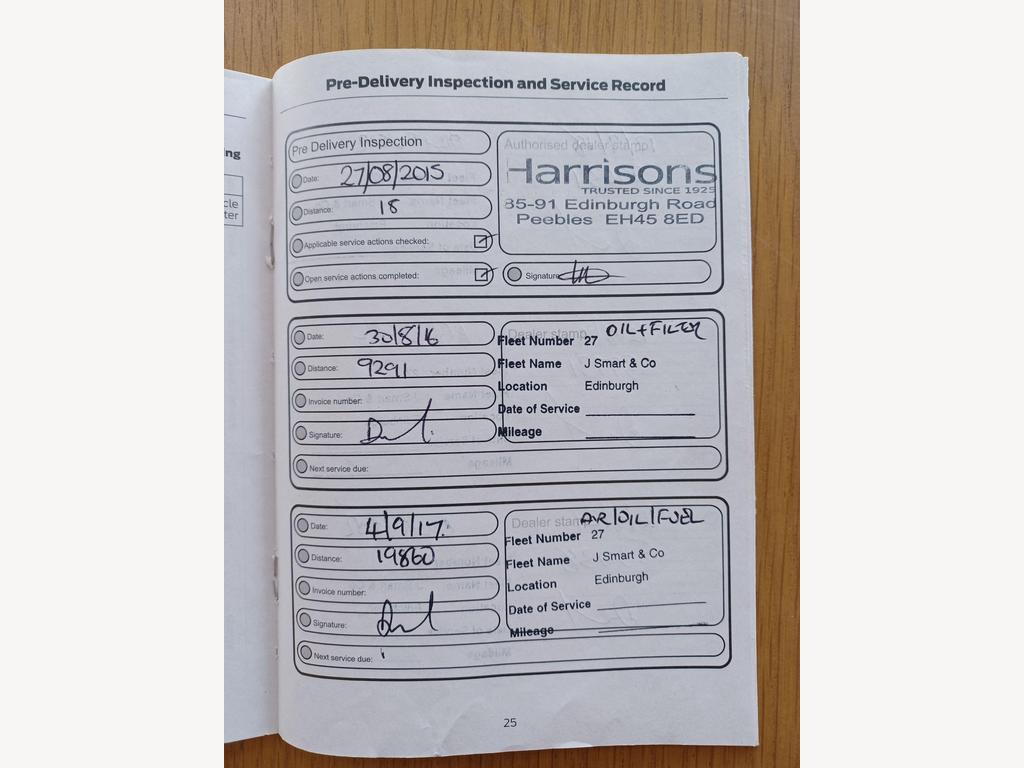 ng
cle
ter
Pre-Delivery Inspection and Service Record
Pre Delivery Inspection
Date: 27/08/2015
Distance: 18
Applicable service actions checked:
Open service actions completed:
Authorised dealer stamp
Harrisons
TRUSTED SINCE 1925
85-91 Edinburgh Road
Peebles EH45 8ED
Signature
Date: 30/8/16
Distance: 9291
Invoice number:
Signature:
Next service due:
Dealer stamp OIL+FILTER
Fleet Number 27
Fleet Name J Smart & Co
Location Edinburgh
Date of Service
Mileage
Date: 4/9/17.
Distance: 19860
Invoice number:
Signature:
Next service due:
Dealer stamp AR/OIL/FUEL
Fleet Number 27
Fleet Name J Smart & Co
Location Edinburgh
Date of Service
Mileage
25